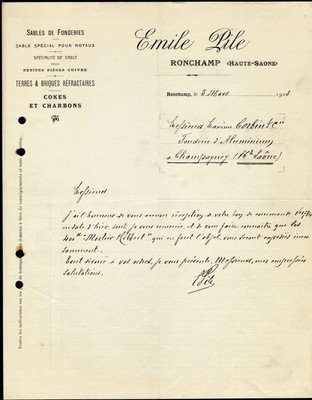 SABLES DE FONDERIES
SABLE SPÉCIAL POUR NOYAUX
SPÉCIALITÉ DE SABLE
POUR
PETITES PIÈCES CUIVRE
TERRES & BRIQUES RÉFRACTAIRES
COKES
ET CHARBONS
Emile Pile
RONCHAMP (HAUTE-SAONE)
Ronchamp, le 3 Mars 19
Messieurs Corbin & Cie
Fonderie d'Aluminium
à Champagney (Hte Saône)
Messieurs
J'ai l'honneur de vous accuser réception de votre bon de commande
en date d'hier, dont je vous remercie, et de vous faire connaître que les
qui en font l'objet, vous seront expédiés
Tout dévoué à vos ordres, je vous présente, Messieurs, mes empressées
salutations.